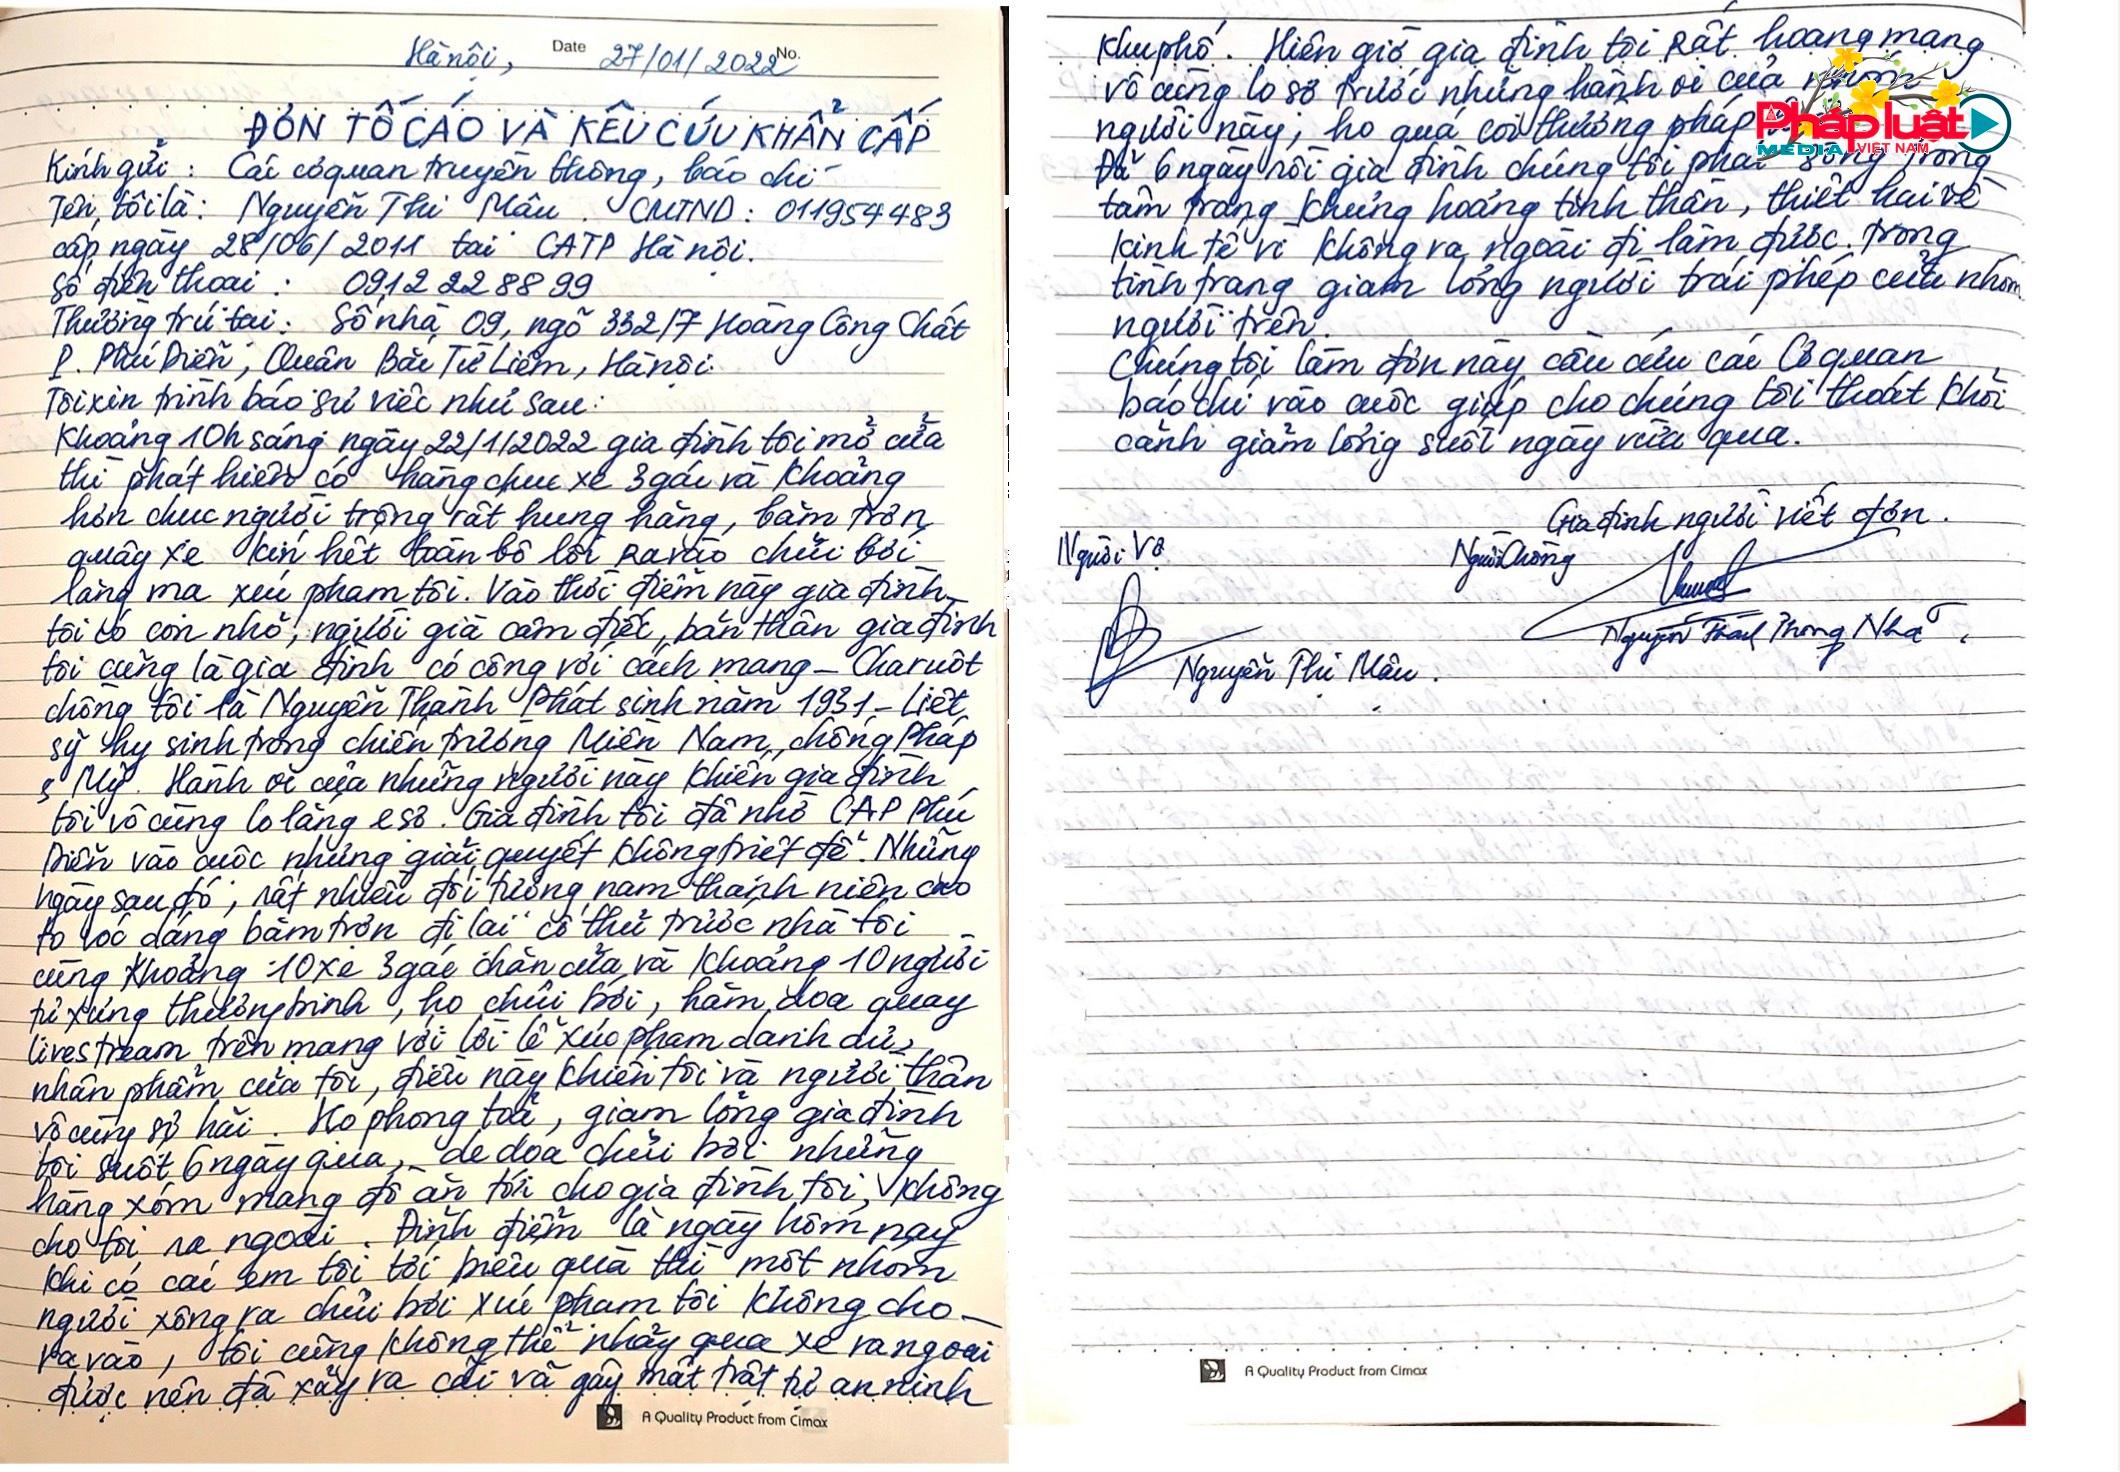 Hà nội, Date 27/01/2022 No.
ĐƠN TỐ CÁO VÀ KÊU CỨU KHẨN CẤP
Kính gửi : Các cơ quan truyền thông, báo chí
Tên tôi là : Nguyễn Thị Mâu . CMTND : 011954483
cấp ngày 28/06/2011 tại CATP Hà nội.
Số điện thoại : 0912 22 88 99
Thường trú tại : Số nhà 09, ngõ 332/7 Hoàng Công Chất
P. Phú Diễn, Quận Bắc Từ Liêm, Hà nội.
Tôi xin trình báo sự việc như sau :
Khoảng 10h sáng ngày 22/1/2022 gia đình tôi mở cửa
thì phát hiện có hàng chục xe 3 gác và khoảng
hơn chục người trông rất hung hăng, bặm trợn
quây xe kín hết toàn bộ lối ra vào chửi bới
lăng mạ xúc phạm tôi. Vào thời điểm này gia đình
tôi có con nhỏ, người già câm điếc, bản thân gia đình
tôi cũng là gia đình có công với cách mạng – Cha ruột
chồng tôi là Nguyễn Thành Phát sinh năm 1931 – Liệt
sỹ hy sinh trong chiến trường Miền Nam, chống Pháp
, Mỹ. Hành vi của những người này khiến gia đình
tôi vô cùng lo lắng e sợ. Gia đình tôi đã nhờ CAP Phú
Diễn vào cuộc nhưng giải quyết không triệt để. Những
ngày sau đó, rất nhiều đối tượng nam thanh niên cao
to vóc dáng bặm trợn đi lại cố thủ trước nhà tôi
cùng khoảng 10 xe 3 gác chặn cửa và khoảng 10 người
tự xưng thương binh, họ chửi bới, hăm dọa quay
livestream trên mạng với lời lẽ xúc phạm danh dự,
nhân phẩm của tôi, điều này khiến tôi và người thân
vô cùng sợ hãi. Họ phong toả, giam lỏng gia đình
tôi suốt 6 ngày qua, đe dọa chửi bới những
hàng xóm mang đồ ăn tới cho gia đình tôi, không
cho tôi ra ngoài. Đỉnh điểm là ngày hôm nay
khi có các em tôi tới biếu quà thì một nhóm
người xông ra chửi bới xúc phạm tôi không cho
ra vào, tôi cũng không thể nhảy qua xe ra ngoài
được nên đã xảy ra cãi vã gây mất trật tự an ninh
A Quality Product from Cimax
khu phố. Hiện giờ gia đình tôi rất hoang mang
vô cùng lo sợ trước những hành vi của nhóm
người này, họ quá coi thường pháp
Pháp luật
MEDIA VIỆT NAM
Đã 6 ngày rồi gia đình chúng tôi phải sống trong
tâm trạng khủng hoảng tinh thần, thiệt hại về
kinh tế vì không ra ngoài đi làm được. trong
tình trạng giam lỏng người trái phép của nhóm
người trên.
Chúng tôi làm đơn này cầu cứu các Cơ quan
báo chí vào cuộc giúp cho chúng tôi thoát khỏi
cảnh giam lỏng suốt ngày vừa qua.
Gia đình người viết đơn.
Người Vợ
Người Chồng
Nguyễn Thanh Phong Nhã
Nguyễn Thị Mâu .
A Quality Product from Cimax